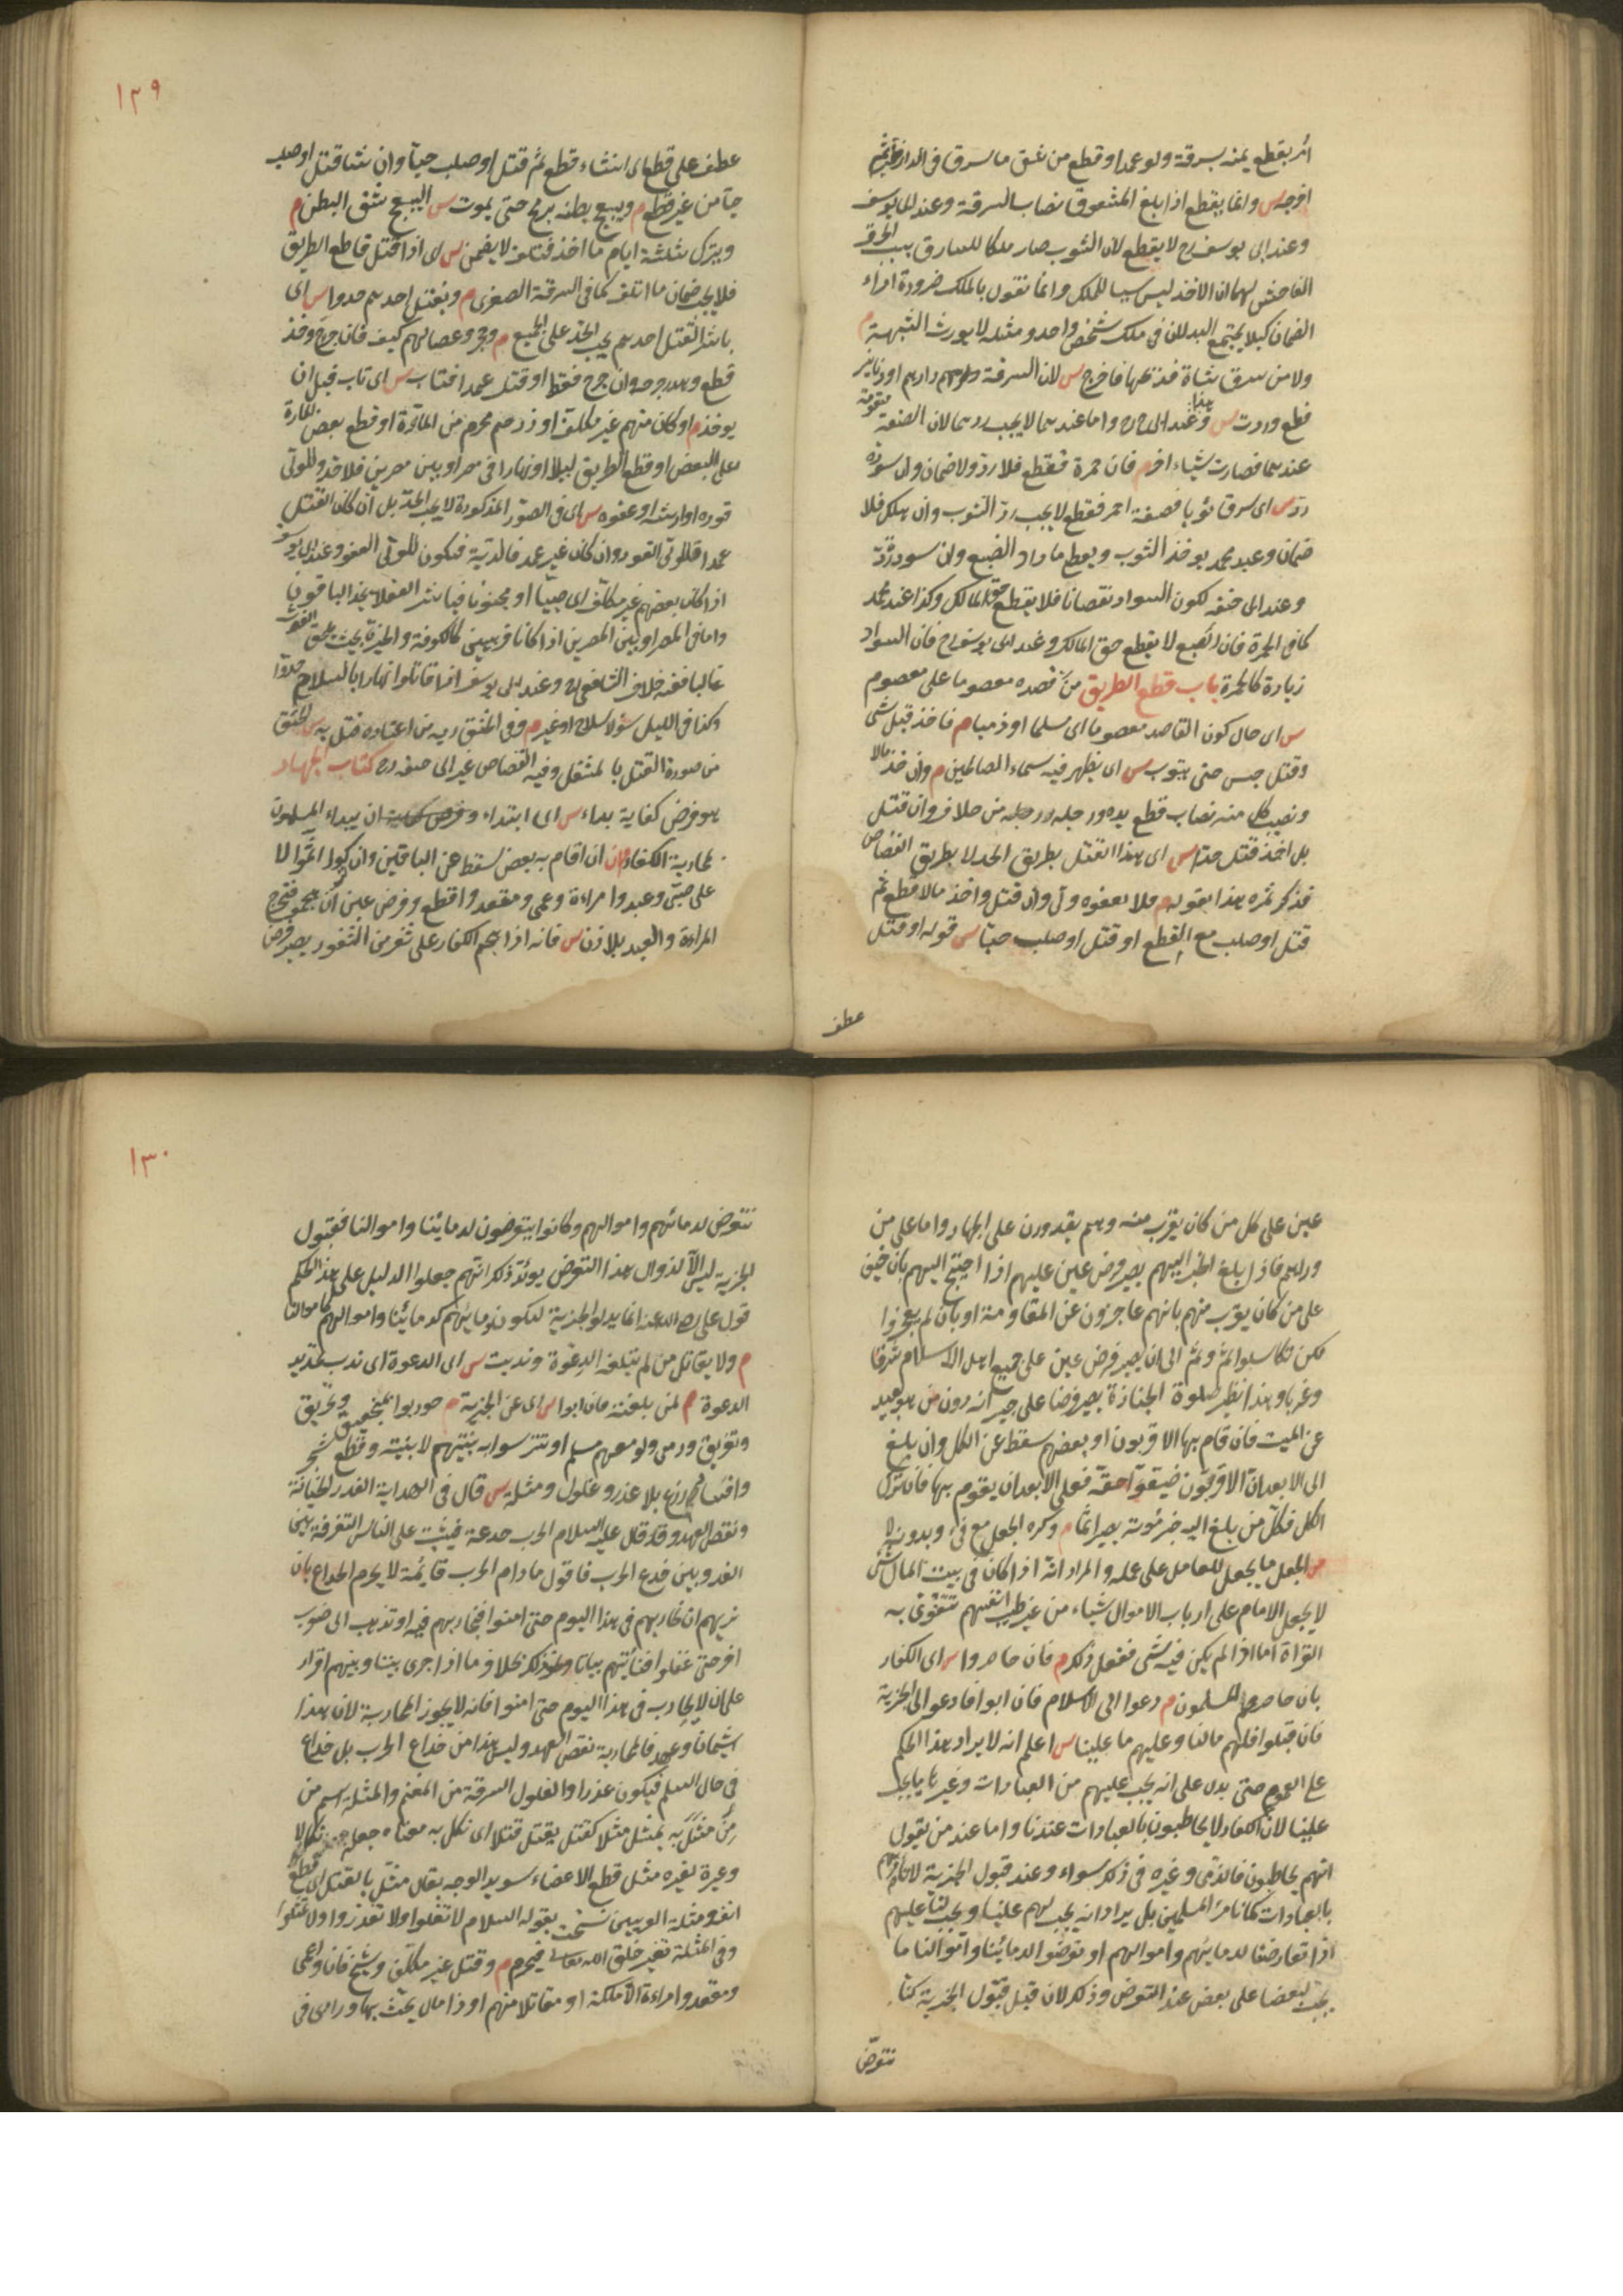 امر بقطع يمينه بسرقة ولو عمدا او قطع من شق ما سرق فى الدار ثم
اخرجه س وانما يقطع اذا بلغ المشقوق نصاب السرقة وعند ابى يوسف
وعند ابى يوسف رح لا يقطع لان الثوب صار ملكا للسارق بسبب الخرق
الفاحش لهما ان الاخذ ليس سببا للملك وانما نقول بالملك ضرورة اداء
الضمان كيلا يجتمع البدلان فى ملك شخص واحد ومثله لا يورث الشبهة م
ولا من سرق شاة فذبحها فاخرج س لان السرقة دراهم او دنانير
قطع وردت س وهذا عند ابى ح رح واما عندهما لا يجب ردهما لان الصنعة متقومة
عندهما فصارت شيئا اخر م فان حمره فقطع فلا رد ولا ضمان وان سوده
رد س اى سرق ثوبا فصبغه احمر فقطع لا يجب رد الثوب وان هلك فلا
ضمان وعند محمد يوخذ الثوب ويعطى ما زاد الصبغ وان سود رد
وعند ابى حنيفه لكون السواد نقصانا فلا يقطع حق المالك وكذا عند محمد
كما فى الحمرة فان الصبغ لا يقطع حق المالك وعند ابى يوسف رح فان السواد
زيادة كالحمرة باب قطع الطريق من قصده معصوما على معصوم
س اى حال كون القاصد معصوما اى مسلما او ذميا م فاخذ قبل شئ
وقتل حبس حتى يتوب س اى يظهر فيه سيماء الصالحين م وان اخذ مالا
ونصيب كل منه نصاب قطع يده ورجله من خلاف وان قتل
بل اخذ قتل حدا س اى هذا القتل بطريق الحد لا بطريق القصاص
فذكر ثمره هذا بقوله م فلا يعفوه ولى وان قتل واخذ مالا قطع ثم
قتل او صلب مع القطع او قتل او صلب حيا س قوله او قتل
عطف
١٢٩
عطف على قطع اى ان شاء قطع ثم قتل او صلب حيا وان شاء قتل او صلب
حيا من غير قطع م ويبعج بطنه برمح حتى يموت س البعج شق البطن م
ويترك ثلثة ايام ما اخذ فتلف لا يضمن س اى اذا قتل قاطع الطريق
فلا يجب ضمان ما اتلف كما فى السرقة الصغرى م وبقتل احدهم حدوا س اى
باشر القتل احدهم يجب الحد على الجميع م وحجر وعصا لهم كسيف فان جرح واخذ
قطع وهدر جرحه وان جرح فقط او قتل عمدا فتاب س اى تاب قبل ان
يوخذ م او كان منهم غير مكلف او ذو رحم محرم من المارة او قطع بعض المارة
على البعض او قطع الطريق ليلا او نهارا فى مصر او بين مصرين فلا حد وللولى
قوده او ارشه او عفوه س اى فى الصور المذكورة لا يجب الحد بل ان كان القتل
عمدا فللولى القود وان كان غير عمد فالدية فيكون للولى العفو وعند ابى يوسف
اذا كان بعضهم غير مكلف اى صبيا او مجنونا فباشر العقلاء يحد الباقون
واما فى المصر او بين المصرين اذا كانا قريبين كالكوفة والحيرة بحيث يلحق الغوث
غالبا ففيه خلاف الشافعى رح وعند ابى يوسف اذا قاتلوا نهارا بالسلاح حدوا
وكذا فى الليل سواء بسلاح او غيره م وفى الخنق ديه من اعتاده قتل به س الخنق
من صورة القتل بالمثقل وفيه القصاص غير ابى حنيفه رح كتاب الجهاد
هو فرض كفاية بداء س اى ابتداء وفرض كفاية ان يبداء المسلمون
بمحاربة الكفار فان م ان اقام به بعض سقط عن الباقين وان تركوا اثموا لا
على صبى وعبد وامراءة وعمى ومقعد واقطع وفرض عين ان هجموا فتخرج
المراءة والعبد بلا اذن س فانه اذا هجم الكفار على ثغر من الثغور يصير فرض
عين على كل من كان يقرب منه وهم يقدرون على الجهاد واما على من
وراءهم فاذا بلغ الخبر اليهم يصير فرض عين عليهم اذا احتيج اليهم بان خيف
على من كان يقرب منهم بانهم عاجزون عن المقاومة او بان لم يعجزوا
لكن تكاسلوا ثم وثم الى ان يصير فرض عين على جميع اهل الاسلام شرقا
وغربا وهذا نظير صلوة الجنازة يصير فرضا على جيرانه دون من هو بعيد
عن الميت فان قام بها الاقربون او بعضهم سقط عن الكل وان بلغ
الى الابعد ان الاقربون ضيعوا حقه فعلى الابعد ان يقوم بها فان ترك
الكل فكل من بلغ اليه خبر موته يصير آثما م وكره الجعل مع فئ وبدونه لا
س الجعل ما يجعل للعامل على عمله والمراد انه اذا كان فى بيت المال شئ
لا يجعل الامام على ارباب الاموال شيئا من غير طيب انفسهم تتقوى به
الغزاة اما اذا لم يكن فيه شئ ففعل ذلك م فان حاصروا س اى الكفار
بان حاصرهم المسلمون م دعوا الى الاسلام فان ابوا فادعوا الى الجزية
فان قبلوا فلهم مالنا وعليهم ما علينا س اعلم انه لا يراد هذا الحكم
على العموم حتى يدل على انه يجب عليهم من العبادات وغيرها ما يجب
علينا لان الكفار لا يخاطبون بالعبادات عندنا واما عند من يقول
انهم يخاطبون فالذمى وغيره فى ذلك سواء وعند قبول الجزية لا نأمرهم
بالعبادات كما نامر المسلمين بل يراد انه يجب لهم علينا ويجب لنا عليهم
اذا تعارضنا لدمائهم واموالهم او تعرضوا لدمائنا واموالنا ما
يجب لبعضنا على بعض عند التعرض وذلك لان قبل قبول الجزية كنا
نتعرض
١٣٠
نتعرض لدمائهم واموالهم وكانوا يتعرضون لدمائنا واموالنا فقبول
الجزية ليس الا لزوال هذا التعرض يؤيد ذلك انهم جعلوا الدليل على هذا الحكم
قول على رضى الله عنه انما بذلوا الجزية ليكون دمائهم كدمائنا واموالهم كاموالنا
م ولا يقاتل من لم تبلغه الدعوة وندبت س اى الدعوة اى ندب تجديد
الدعوة م لمن بلغته فان ابوا س اى عن الجزية م حوربوا بمنجنيق وتحريق
وتغريق ورمى ولو معهم مسلم او تترسوا به بنيتهم لا بنيته وقطع شجر
وافساد زرع بلا غدر وغلول ومثلة س قال فى الهداية الغدر الخيانة
ونقض العهد وقد قال عليه السلام الحرب خدعة فيثبت على الناس التفرقة بين
الغدر وبين خدع الحرب فاقول ما دام الحرب قائمة لا يحرم الخداع بان
نريهم ان نحاربهم فى هذا اليوم حتى امنوا فنحاربهم فيه او نذهب الى صوب
اخر حتى غفلوا فنأتيهم بياتا ونحو ذلك بخلاف ما اذا جرى بيننا وبينهم اقرار
على ان لا يحارب فى هذا اليوم حتى امنوا فانه لا يجوز المحاربة لان هذا
استيمان وعهد فالمحاربة نقض العهد وليس هذا من خداع الحرب بل خداع
فى حال السلم فيكون غدرا والغلول السرقة من المغنم والمثلة اسم من
من مثل به يمثل مثلا كقتل يقتل قتلا اى نكل به معناه جعله نكالا
وعبرة لغيره مثل قطع الاعضاء وتسويد الوجه يقال مثل بالقتل اى قطع
انفه ومثلة العرنيين نسخت بقوله السلام لا تغلوا ولا تغدروا ولا تمثلوا
وفى المثلة تغيير خلق الله تعالى فيحرم م وقتل غير مكلف وشيخ فان واعمى
ومقعد وامراءة الا ملكة او مقاتلا منهم او ذا مال يحث بها وراى فى